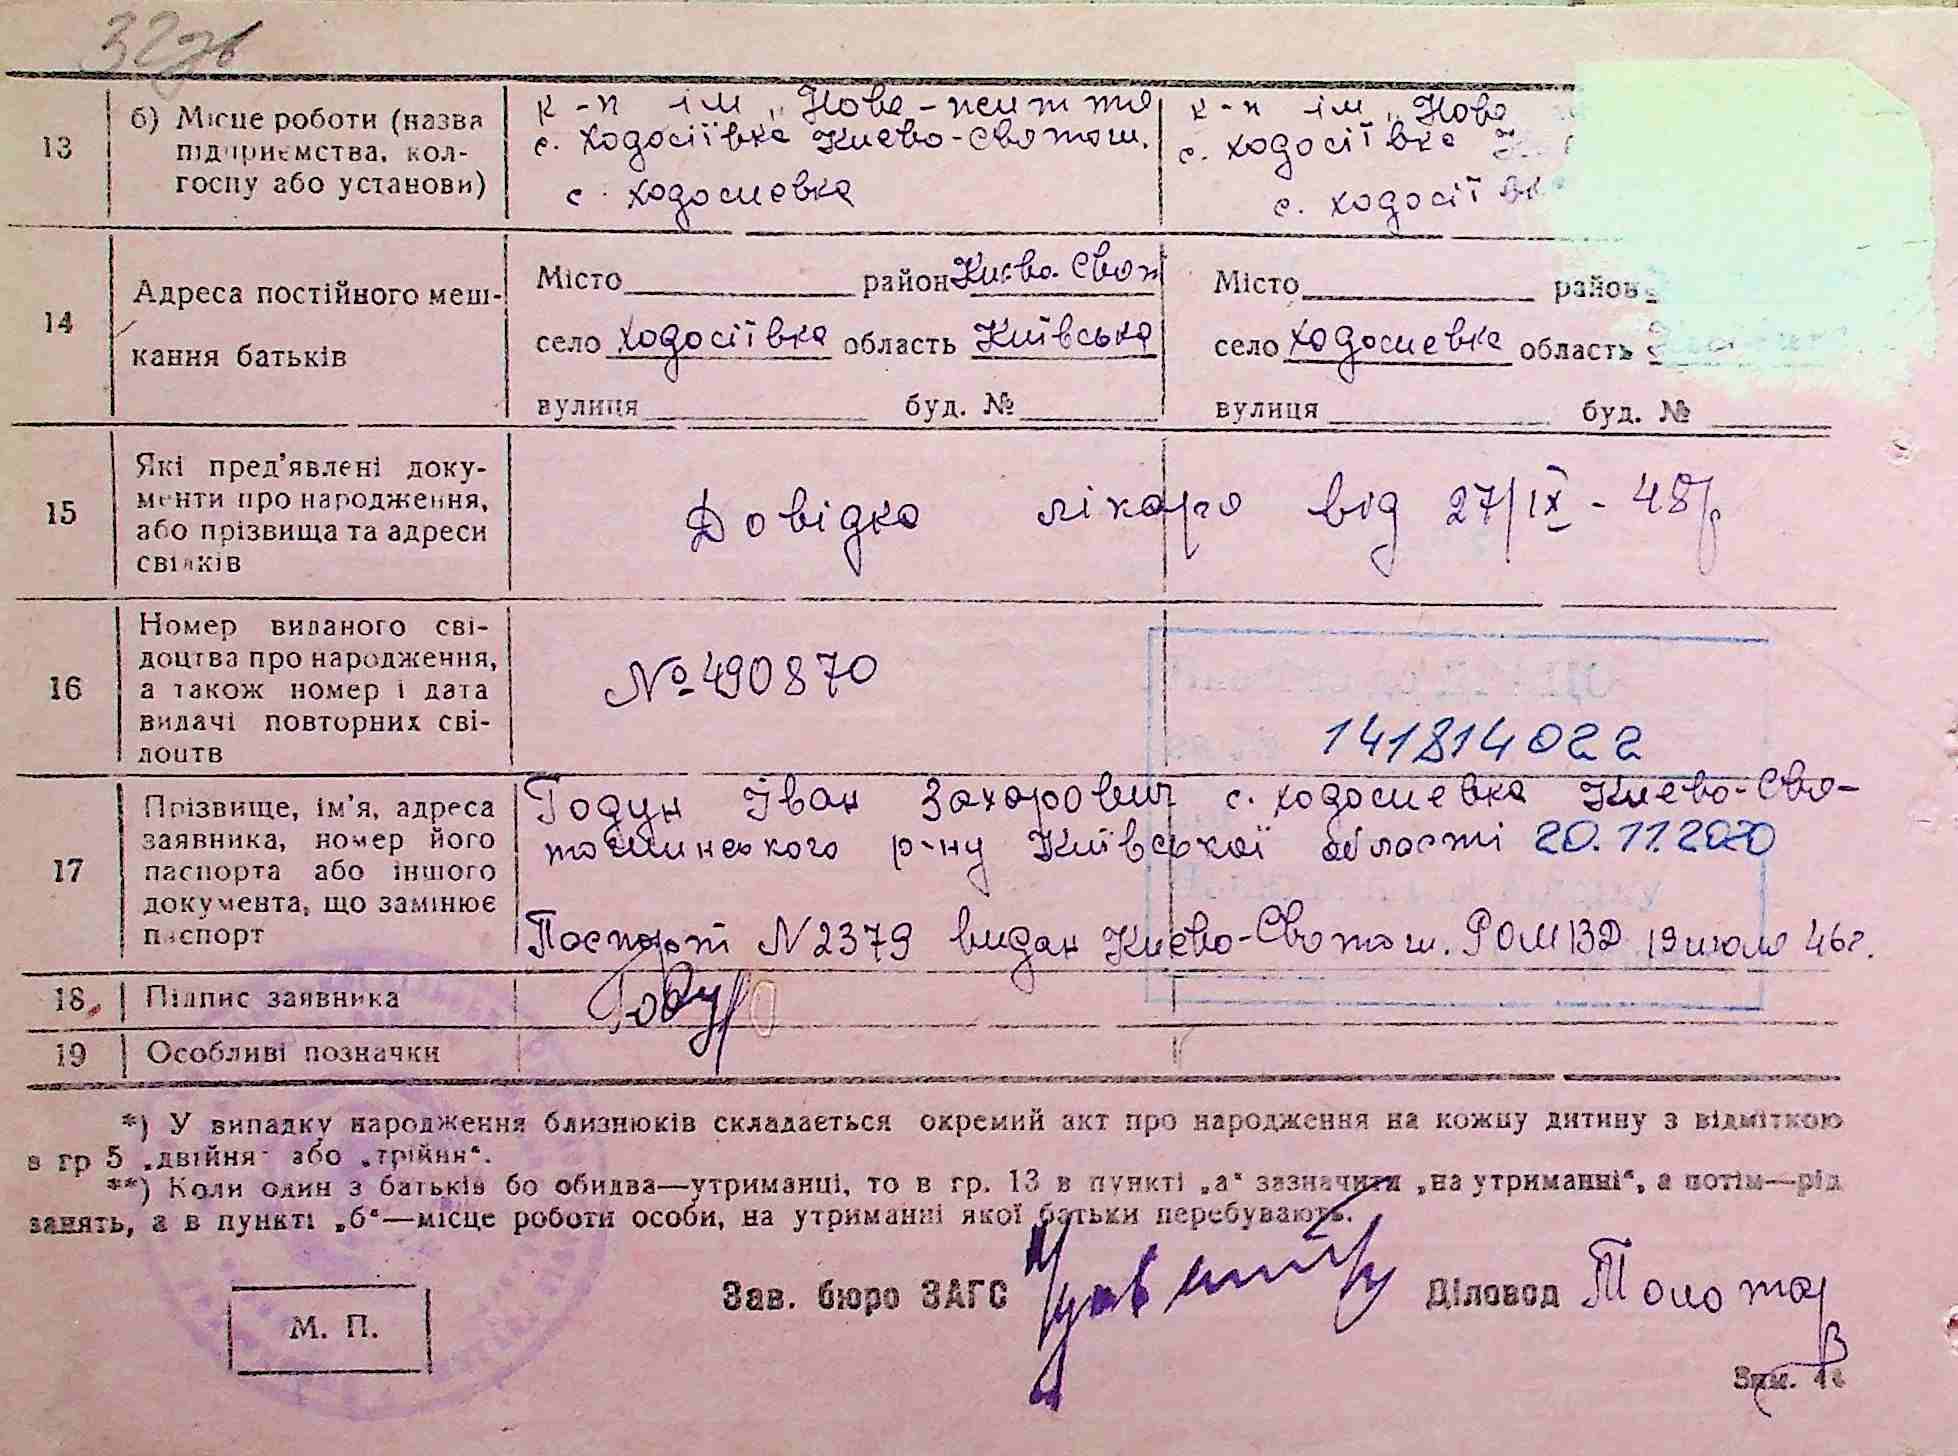 32зв
13
б) Місце роботи (назва
підприємства, кол-
госпу або установи)
к-п ім „Нове-життя
с. Ходосіївка Києво-Святош.
с. Ходосиевка
к-п ім „Нове
с. Ходосіївка
с. Ходосіївка
14
Адреса постійного меш-
кання батьків
Місто район Києво-Свят
село Ходосіївка область Київська
вулиця буд. №
Місто район
село Ходосиевка область
вулиця буд. №
15
Які пред'явлені доку-
менти про народження,
або прізвища та адреси
свідків
Довідка лікаря від 27/IX - 48 р
16
Номер виданого сві-
доцтва про народження,
а також номер і дата
видачі повторних сві-
доцтв
№ 490870
141814022
17
Прізвище, ім'я, адреса
заявника, номер його
паспорта або іншого
документа, що замінює
паспорт
Годун Іван Захарович с. Ходосиевка Києво-Свя-
тошинського р-ну Київської області 20.11.2020
Паспорт N 2379 видан Києво-Святош. РОМВД 19 июля 46 г.
18 Підпис заявника
Году
19 Особливі позначки
*) У випадку народження близнюків складається окремий акт про народження на кожну дитину з відміткою
в гр 5 „двійня" або „трійня".
**) Коли один з батьків бо обидва—утриманці, то в гр. 13 в пункті „а" зазначити „на утриманні", а потім—рід
занять, а в пункті „б"—місце роботи особи, на утриманні якої батьки перебувають.
М. П.
Зав. бюро ЗАГС
Діловод
Зам.